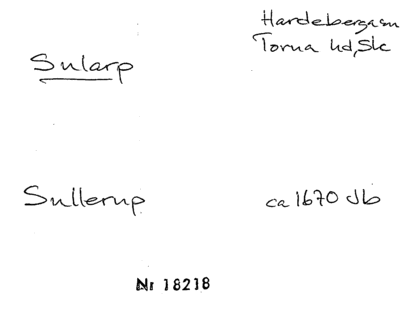 Hardeberga sn
Torna hd, Sk
Sularp
Sullerup ca 1670 Jb
Nr 18218